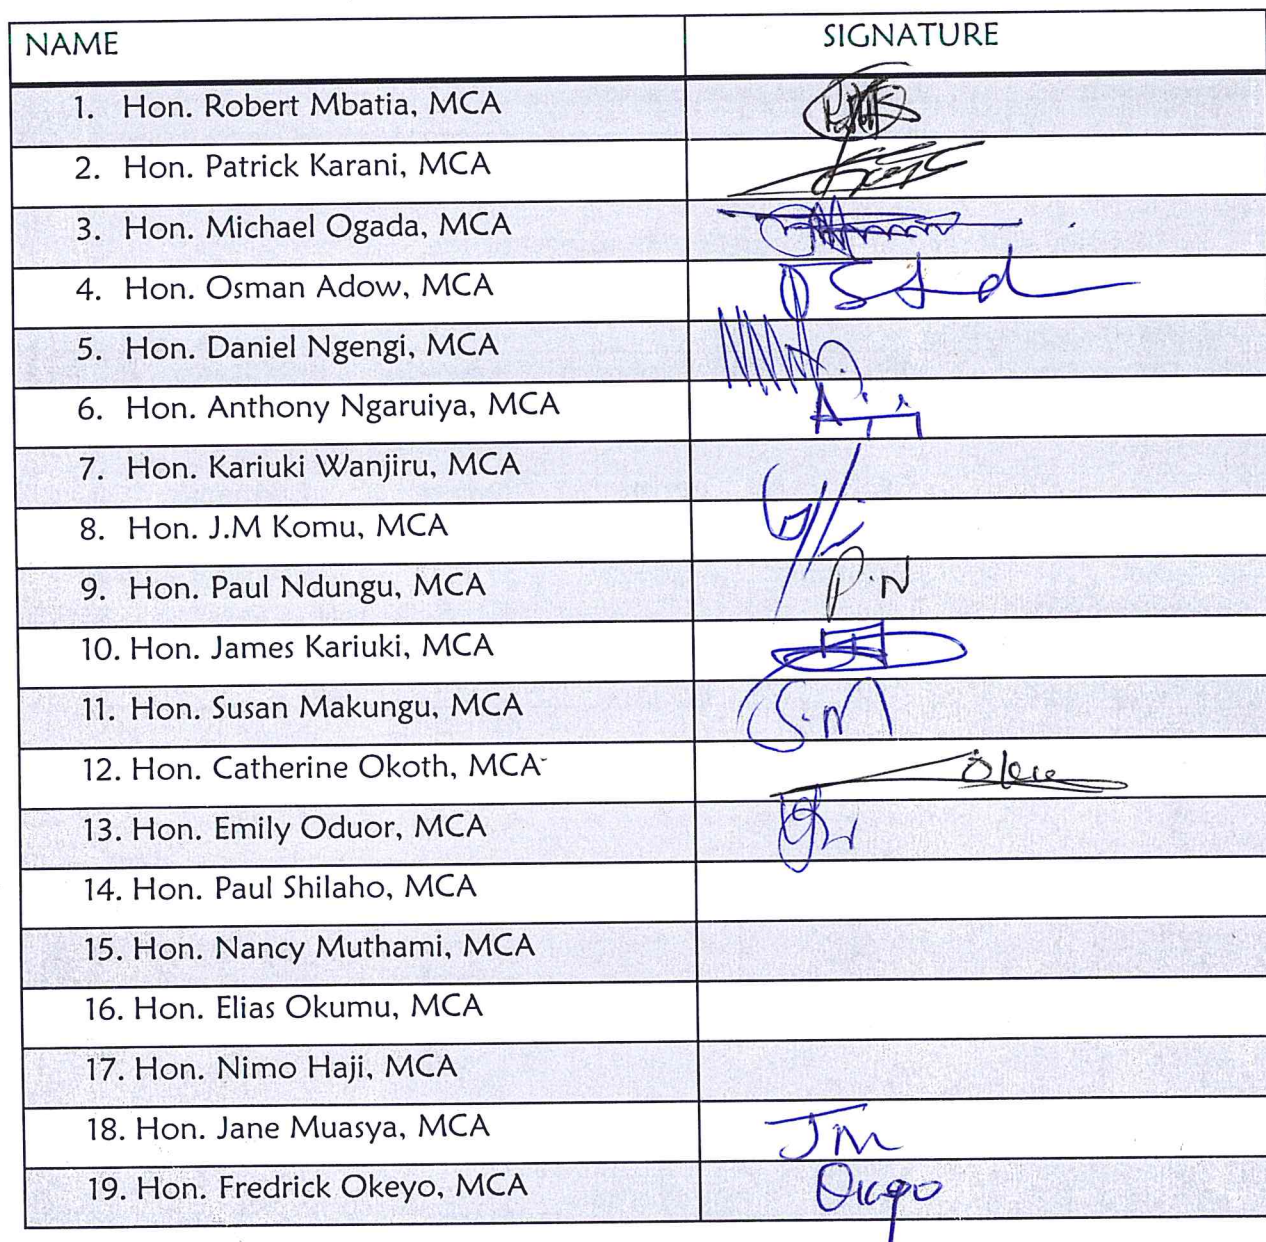 NAME SIGNATURE
1. Hon. Robert Mbatia, MCA
2. Hon. Patrick Karani, MCA
3. Hon. Michael Ogada, MCA
4. Hon. Osman Adow, MCA
5. Hon. Daniel Ngengi, MCA
6. Hon. Anthony Ngaruiya, MCA
7. Hon. Kariuki Wanjiru, MCA
8. Hon. J.M Komu, MCA
9. Hon. Paul Ndungu, MCA P.N
10. Hon. James Kariuki, MCA
11. Hon. Susan Makungu, MCA S.M
12. Hon. Catherine Okoth, MCA
13. Hon. Emily Oduor, MCA
14. Hon. Paul Shilaho, MCA
15. Hon. Nancy Muthami, MCA
16. Hon. Elias Okumu, MCA
17. Hon. Nimo Haji, MCA
18. Hon. Jane Muasya, MCA JM
19. Hon. Fredrick Okeyo, MCA